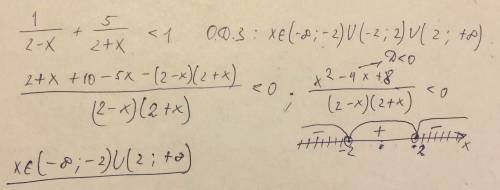 1/(2-x) + 5/(2+x) < 1 О.Д.З: x∈(-∞;-2)∪(-2;2)∪(2;+∞)
(2+x+10-5x-(2-x)(2+x))/((2-x)(2+x)) < 0 ; (x²-4x+8)/((2-x)(2+x)) < 0
D<0
- + -
-2 2 x
x∈(-∞;-2)∪(2;+∞)